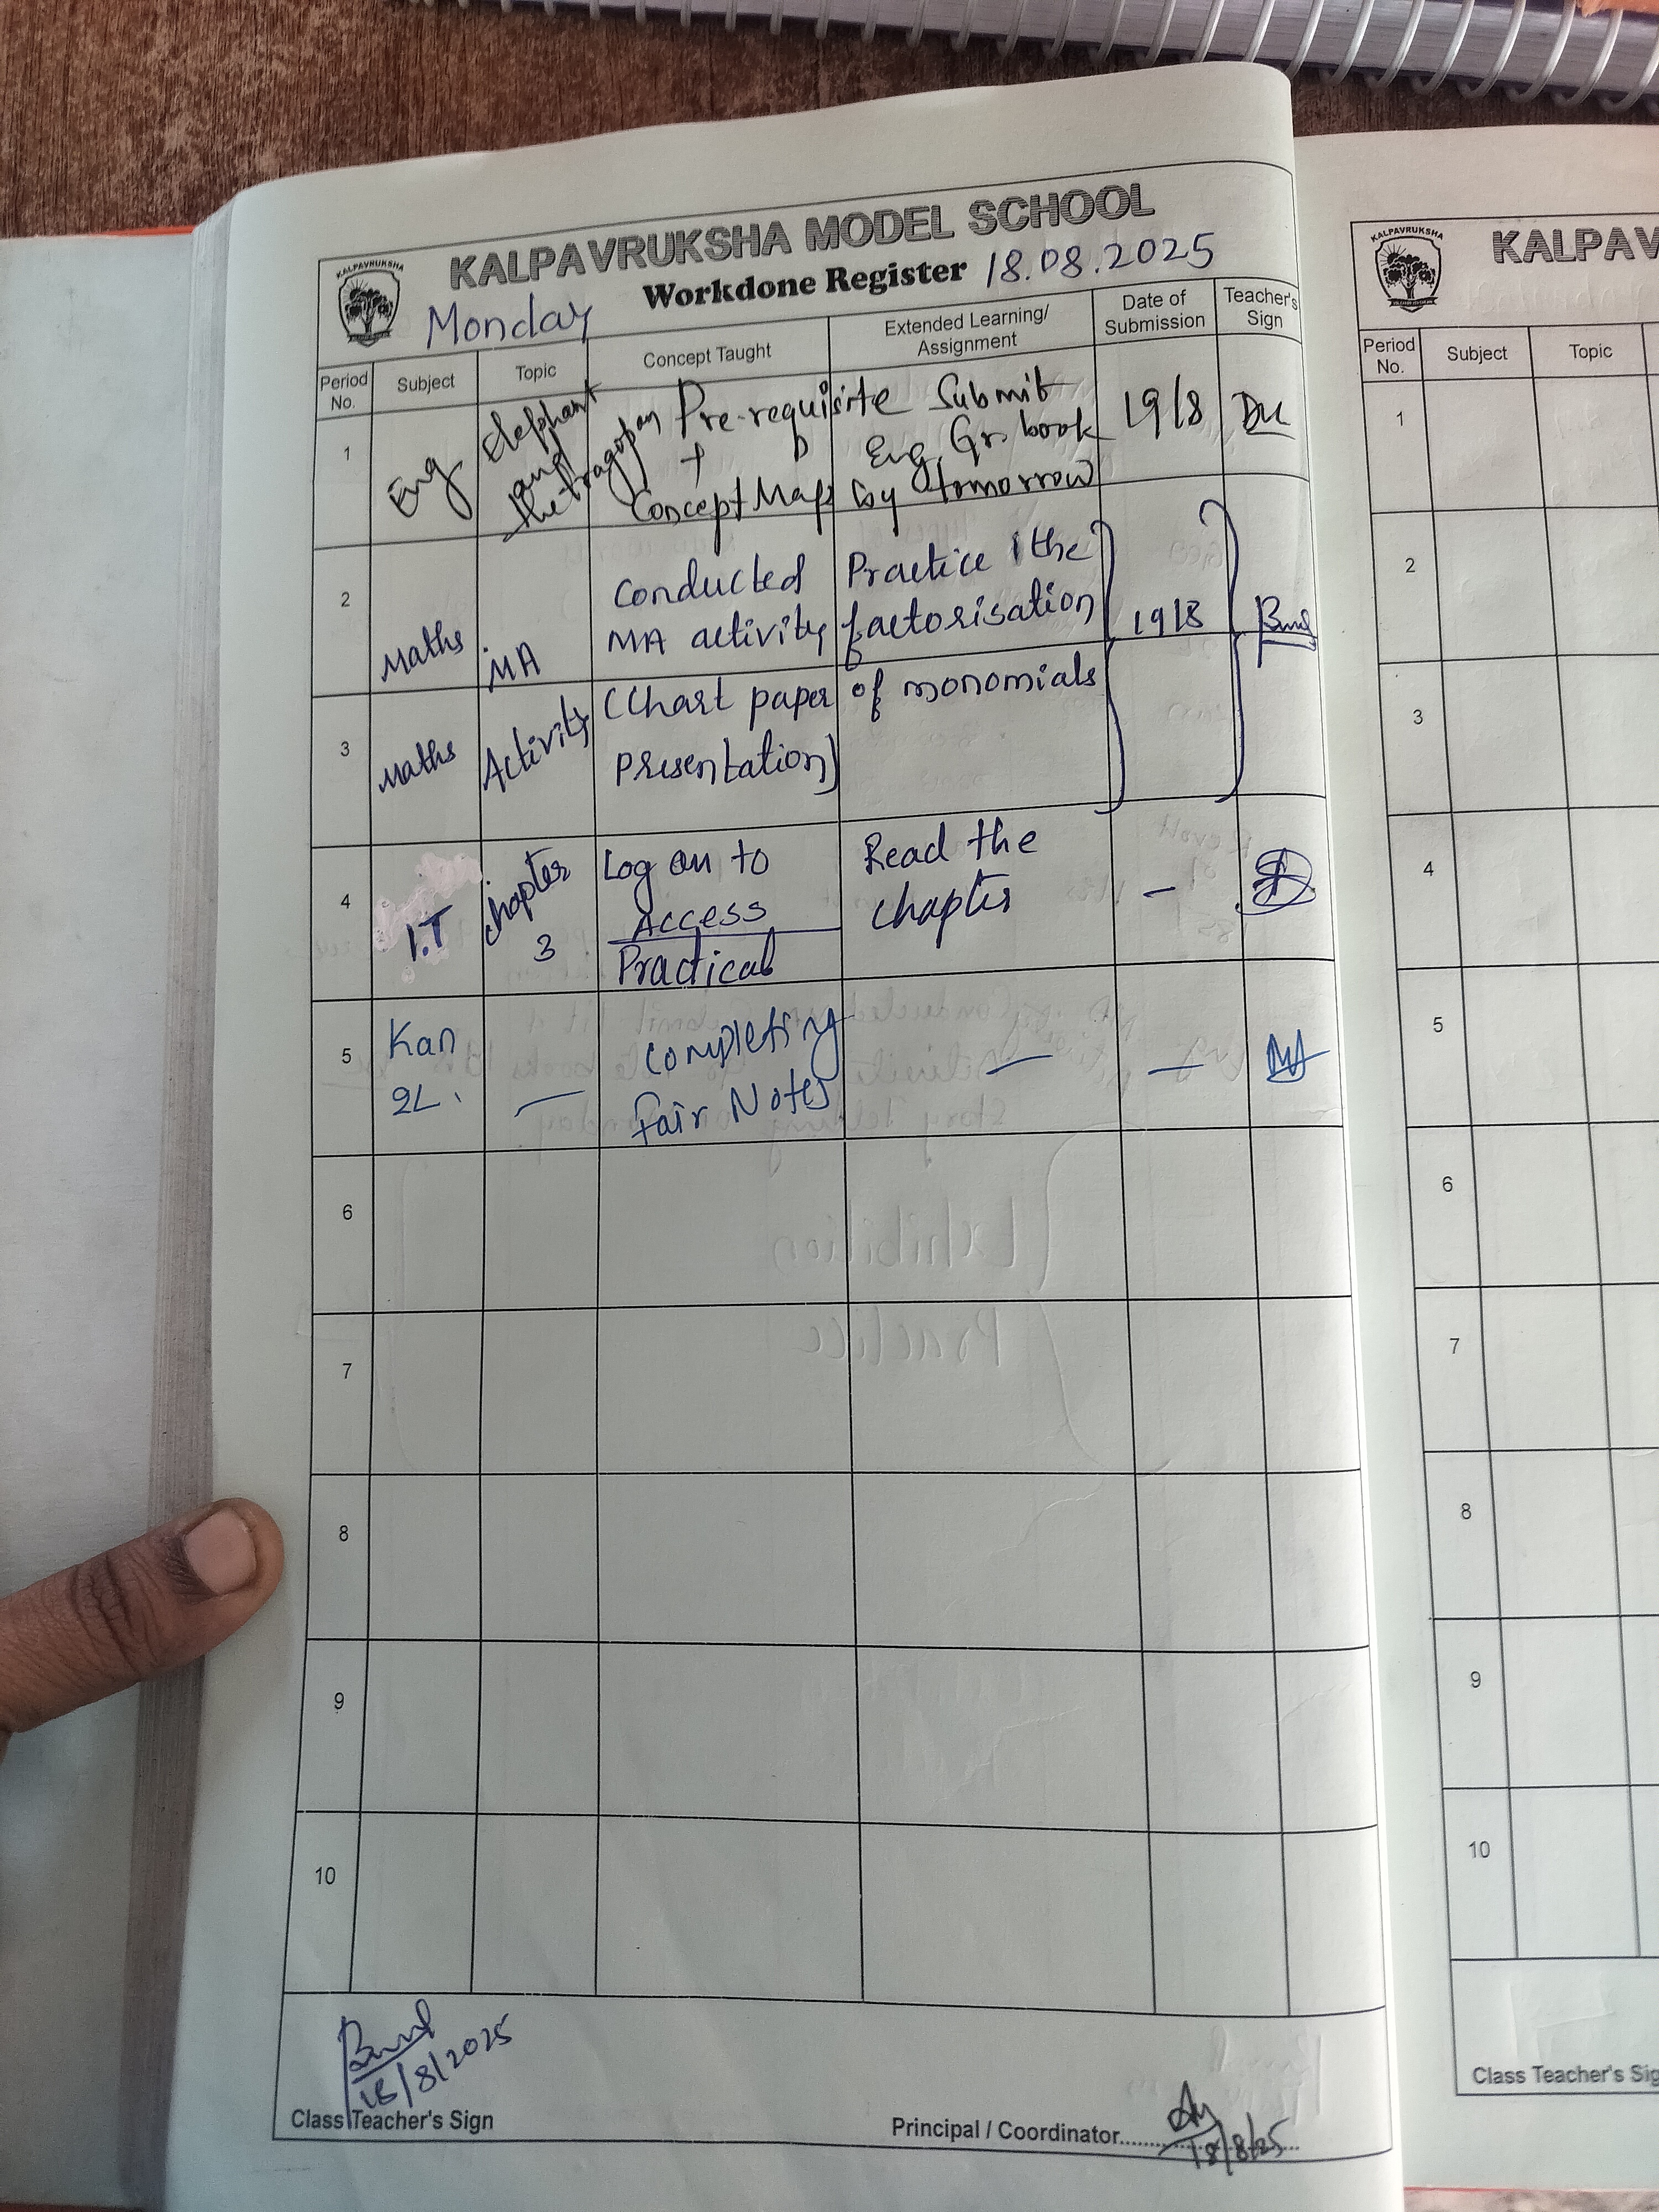 KALPAVRUKSHA MODEL SCHOOL
KALPAVRUKSHA
Monday
Workdone Register 18.08.2025
Period No. Subject Topic Concept Taught Extended Learning/ Assignment Date of Submission Teacher's Sign
1 Eng Elephant and the tragopan Pre-requisite + Concept Map Submit Eng Gr. book by tomorrow 19/8
2 Maths MA Conducted MA activity Practice the factorisation 19/8
3 Maths Activity (Chart paper presentation) of monomials
4 I.T chapter 3 Log on to Access Practical Read the chapter -
5 Kan 2L. - Completing Fair Notes - -
6
7
8
9
10
18/8/2025
Class Teacher's Sign
Principal / Coordinator
18/8/25
KALPAV
KALPAVRUKSHA
Period No. Subject Topic
1
2
3
4
5
6
7
8
9
10
Class Teacher's Sig